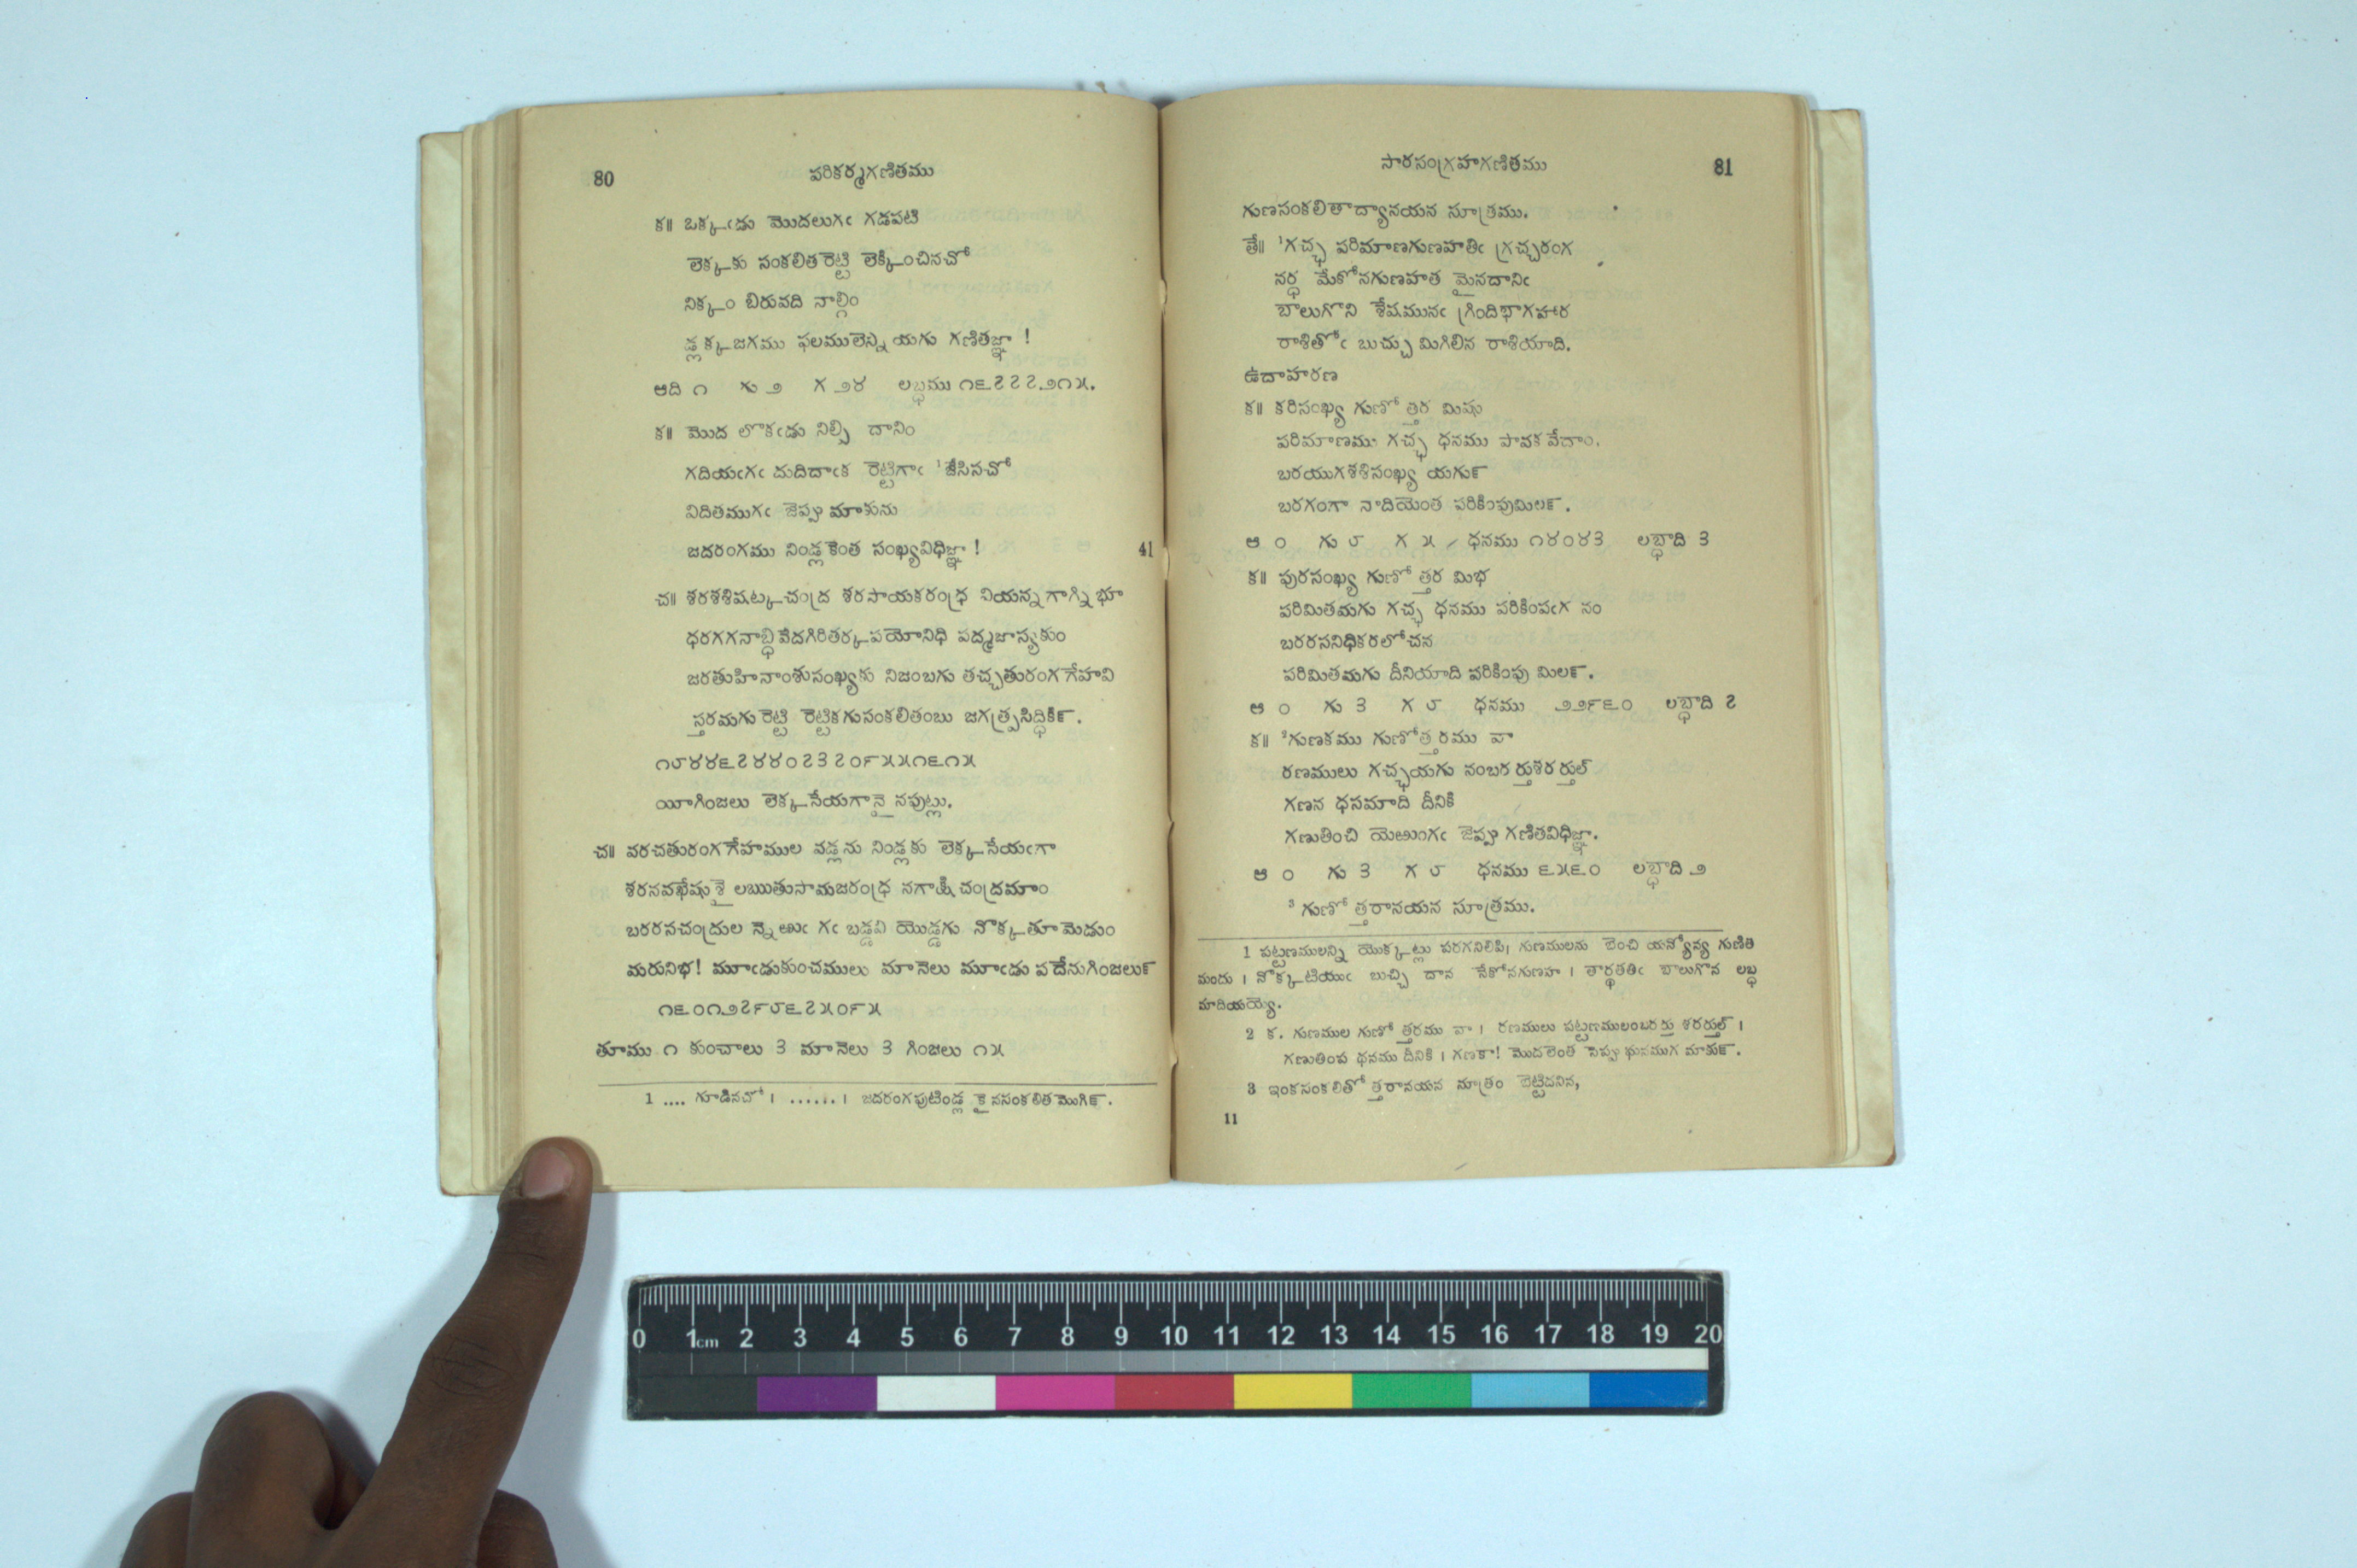 80 పరికర్మగణితము
క॥ ఒక్కఁడు మొదలుగఁ గడపటి
లెక్కకు సంకలిత రెట్టి లెక్కించినచో
నిక్కం బిరువది నాల్గిం
డ్లక్కజగము ఫలములెన్ని యగు గణితజ్ఞా !
ఆది ౧ గు ౨ గ ౨౪ లబ్ధము ౧౬౭౭౭౨౧౫.
క॥ మొద లొకఁడు నిల్పి దానిం
గదియఁగఁ దుదిదాఁక రెట్టిగాఁ ¹జేసినచో
నిదితముగఁ జెప్పు మాకును
జదరంగము నిండ్లకెంత సంఖ్యవిధిజ్ఞా ! 41
చ॥ శరశశిషట్కచంద్ర శరసాయకరంధ్ర వియన్నగాగ్ని భూ
ధరగగనాబ్ధివేదగిరితర్కపయోనిధి పద్మజాస్యకుం
జరతుహినాంశుసంఖ్యకు నిజంబగు తచ్చతురంగగేహవి
స్తరమగు రెట్టి రెట్టికగుసంకలితంబు జగత్ప్రసిద్ధికిన్.
౧౮౪౪౬౭౪౪౦౭౩౭౦౯౫౫౧౬౧౫
యీగింజలు లెక్కసేయగానై నపుట్లు.
చ॥ వరచతురంగగేహముల వడ్లను నిండ్లకు లెక్కసేయఁగా
శరనవఖేషుశైలఋతుసామజరంధ్ర నగాక్షి చంద్రమాం
బరరసచంద్రుల న్నెఱుఁ గఁ బడ్డవి యొడ్డగు నొక్కతూమెడుం
మరునిభ! మూఁడుకుంచములు మానెలు మూఁడు పదేనుగింజలున్
౧౬౦౧౨౭౯౮౬౭౫౦౯౫
తూము ౧ కుంచాలు ౩ మానెలు ౩ గింజలు ౧౫
1 .... గూడినచో । ...... । జదరంగపుటిండ్ల కైనసంకలిత మొగిన్.
సారసంగ్రహగణితము 81
గుణసంకలితాద్యానయన సూత్రము.
తే॥ ¹గచ్ఛ పరిమాణగుణహతిఁ గ్రచ్చరంగ
నర్ధ మేకోనగుణహత మైనదానిఁ
బాలుగొని శేషమునఁ గ్రిందిభాగహార
రాశితోఁ బుచ్చు మిగిలిన రాశియాది.
ఉదాహరణ
క॥ కరిసంఖ్య గుణోత్తర మిషు
పరిమాణము గచ్ఛ ధనము పావక వేదాం
బరయుగశశిసంఖ్య యగున్
బరగంగా నాదియెంత పరికింపుమిలన్.
ఆ ౦ గు ౮ గ ౫ ధనము ౧౪౦౪౩ లబ్ధాది ౩
క॥ పురసంఖ్య గుణోత్తర మిభ
పరిమితమగు గచ్ఛ ధనము పరికింపఁగ నం
బరరసనిధికరలోచన
పరిమితమగు దీనియాది పరికింపు మిలన్.
ఆ ౦ గు ౩ గ ౮ ధనము ౨౨౯౬౦ లబ్ధాది ౭
క॥ ²గుణకము గుణోత్తరము వా
రణములు గచ్ఛయగు నంబరర్తుశరర్తుల్
గణన ధనమాది దీనికి
గణుతించి యెఱుంగఁ జెప్పు గణితవిధిజ్ఞా.
ఆ ౦ గు ౩ గ ౮ ధనము ౬౫౬౦ లబ్ధాది ౨
³ గుణోత్తరానయన సూత్రము.
1 పట్టణములన్ని యొక్కట్లు పరగనిలిపి, గుణములను బెంచి యన్యోన్య గుణితి
మందు । నొక్కటియుఁ బుచ్చి దాన నేకోనగుణహ । తార్థతతిఁ బాలుగొన లబ్ధ
మాదియయ్యె.
2 క. గుణముల గుణోత్తరము వా । రణములు పట్టణములంబరర్తు శరర్తుల్ ।
గణుతింప ధనము దీనికి । గణకా! మొదలెంత సెప్పు ఘనముగ మాకున్.
3 ఇంకసంకలితోత్తరానయన సూత్రం బెట్టిదనిన,
11
0 1cm 2 3 4 5 6 7 8 9 10 11 12 13 14 15 16 17 18 19 20